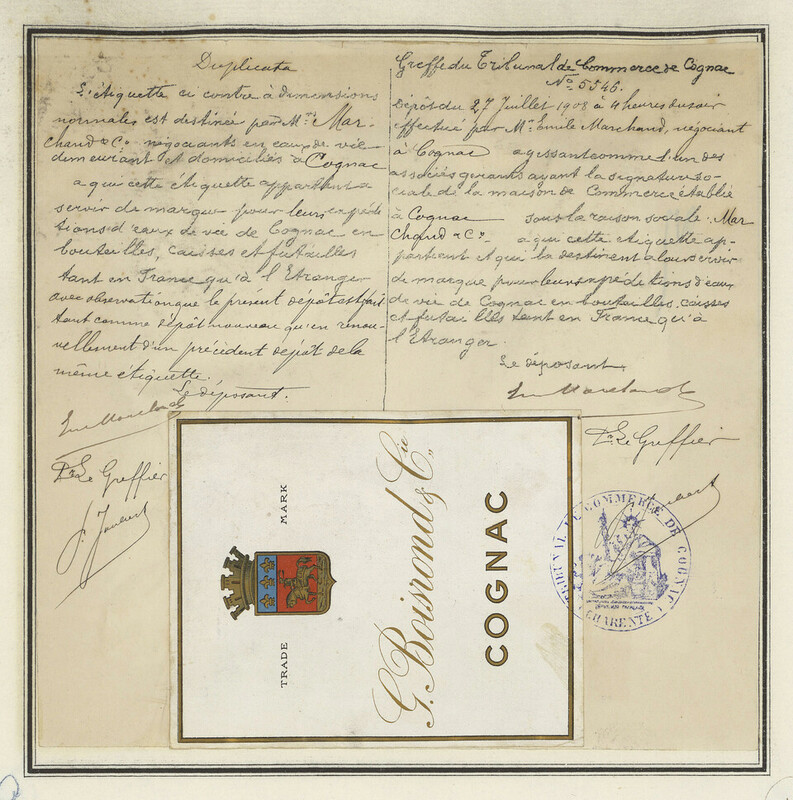 Duplicata
L'étiquette ci contre à dimensions
normales est destinée par Mrs Mar-
chand & Co. négociants en eaux de vie
demeurant et domiciliés à Cognac
a qui cette étiquette appartient a
servir de marque pour leurs expédi
tions d'eaux de vie de Cognac en
bouteilles, caisses et futailles
tant en France qu'à l'Etranger
avec observation que le présent dépôt est fait
tant comme dépôt nouveau qu'en renou-
vellement d'un précédent dépôt de la
même étiquette.
Le déposant.
Em Marchand
Pr Le Greffier
Greffe du Tribunal de Commerce de Cognac
No. 5546.
Dépôt du 27 Juillet 1908 à 4 heures du soir
effectué par Mr. Emile Marchand, négociant
à Cognac agissant comme l'un des
associés gérants ayant la signature so-
ciale de la maison de Commerce établie
à Cognac sous la raison sociale: Mar
chand & Co. a qui cette étiquette ap-
partient et qui la destinent a leur servir
de marque pour leurs expéditions d'eaux
de vie de Cognac en bouteilles, caisses
et futailles tant en France qu'à
l'Etranger.
Le déposant.
Em Marchand
Pr Le Greffier
TRADE MARK
G. Boisrond & Cie
COGNAC
TRIBUNAL DE COMMERCE DE COGNAC
(CHARENTE)